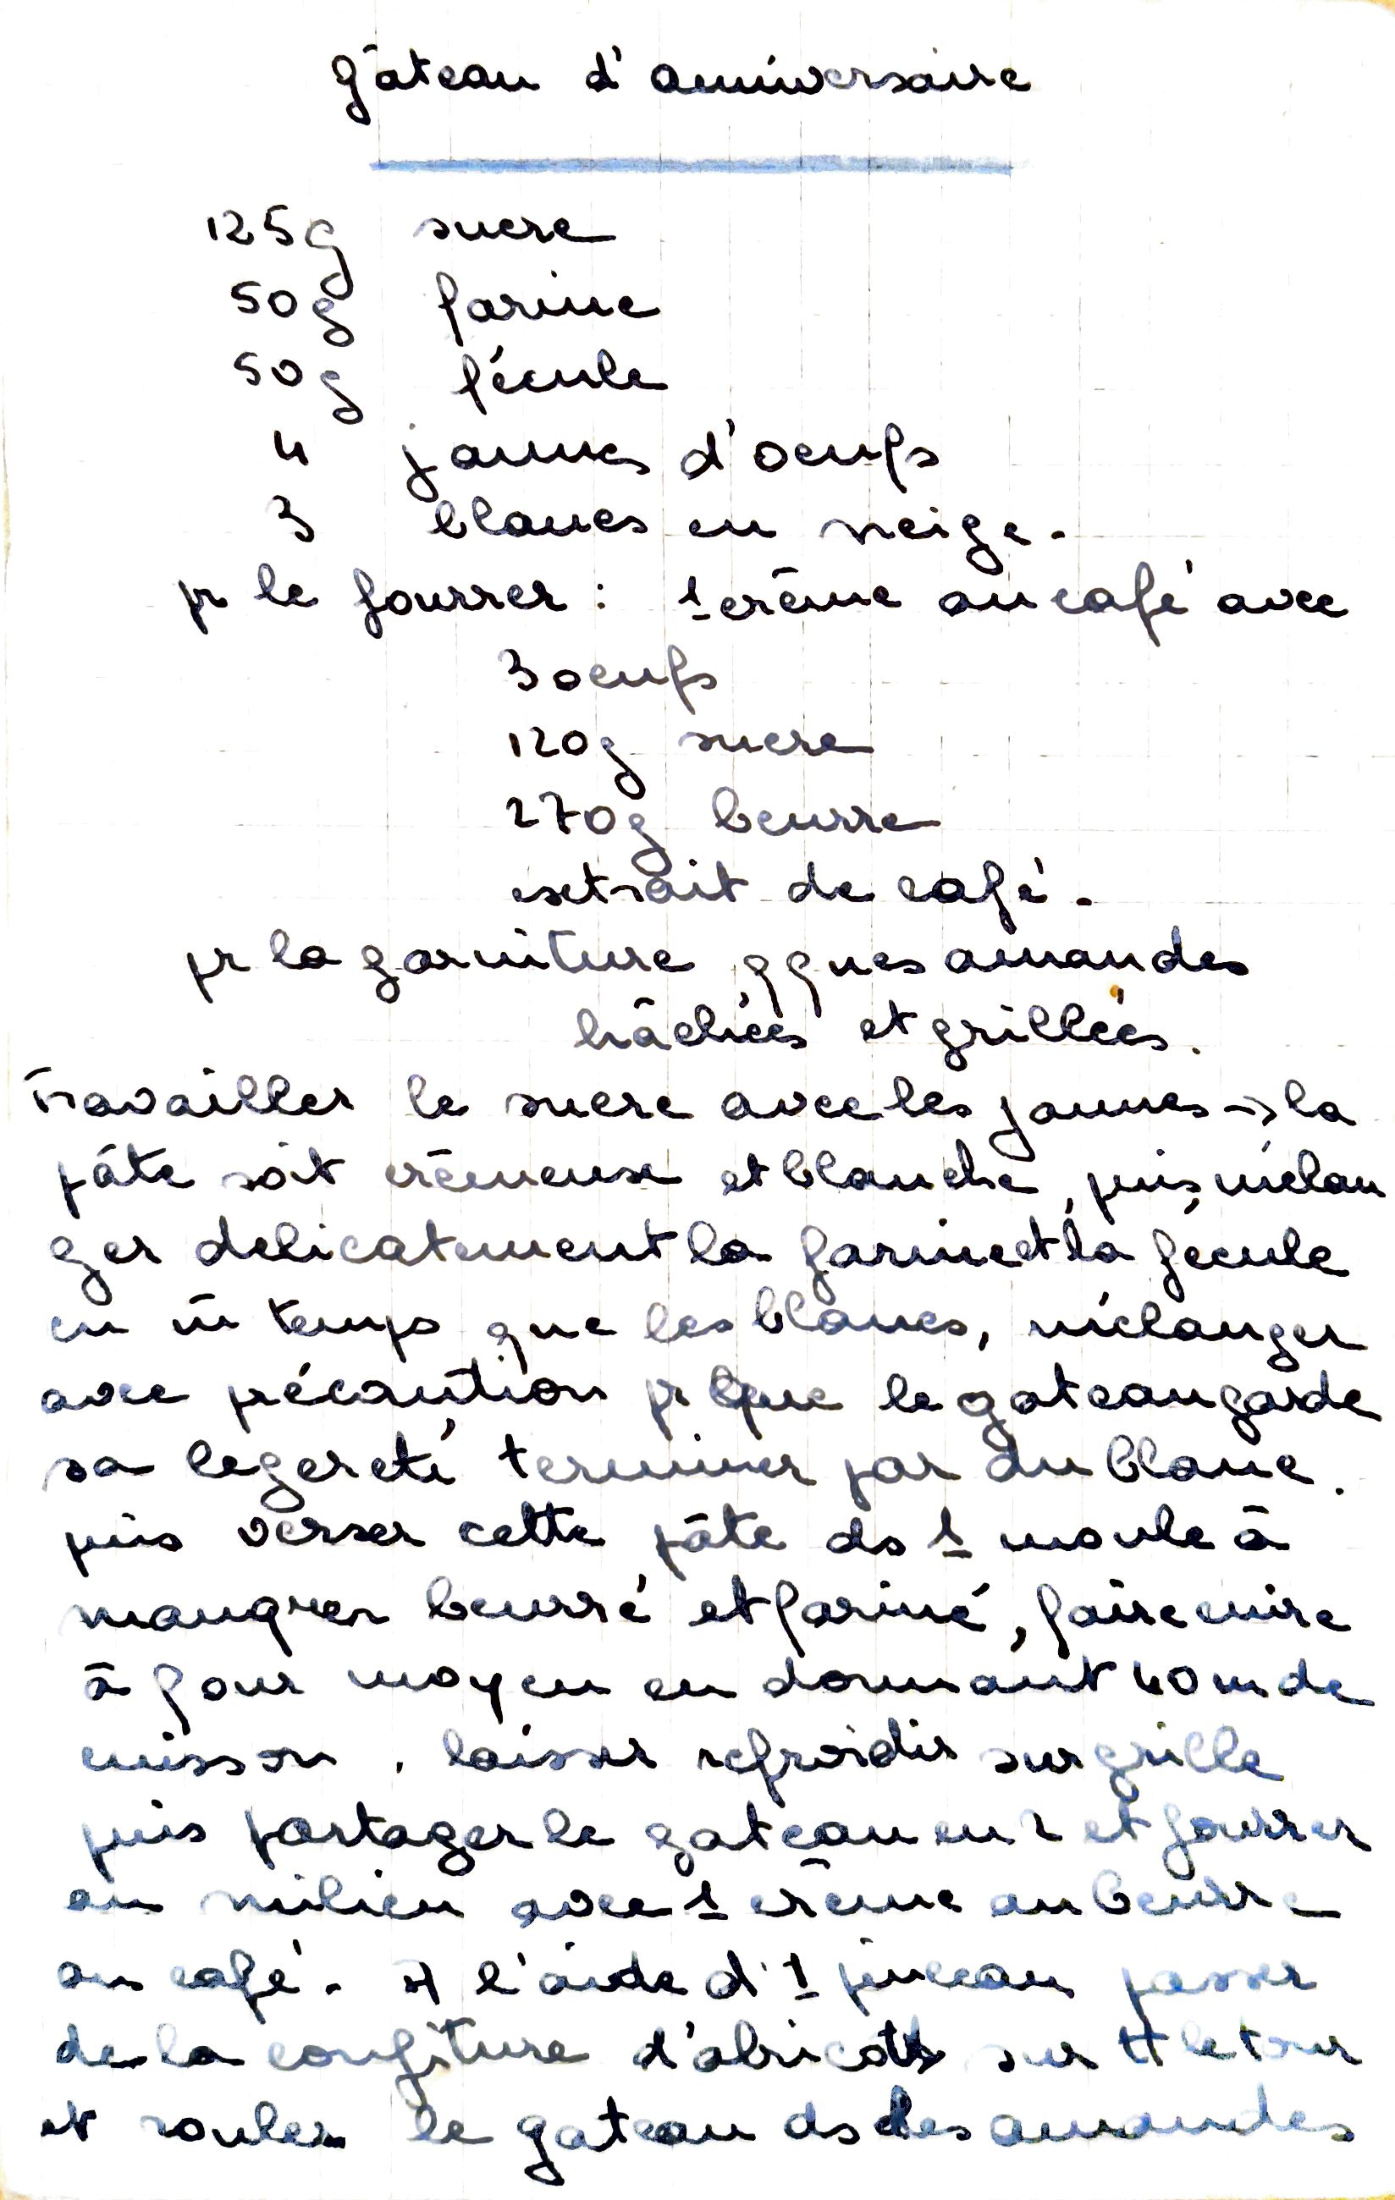 gâteau d'anniversaire
125g sucre
50g farine
50g fécule
4 jaunes d'oeufs
3 blancs en neige.
pr le fourrer : 1 crème au café avec
3 oeufs
120g sucre
270g beurre
extrait de café.
pr la garniture qques amandes
hâchées et grillées.
Travailler le sucre avec les jaunes → la
pâte soit crèmeuse et blanche, puis mélan
ger delicatement la farine et la fécule
en m̄ temps que les blancs, mélanger
avec précaution pr que le gateau garde
sa legereté, terminer par du blanc.
puis verser cette pâte ds 1 moule à
manquer beurré et fariné, faire cuire
à four moyen en donnant 40 m de
cuisson. laisser refroidir sur grille
puis partager le gateau en 2 et fourrer
au milieu avec 1 crème au beurre
au café. A l'aide d'1 pinceau passer
de la confiture d'abricots sur tt le tour
et rouler le gateau ds des amandes